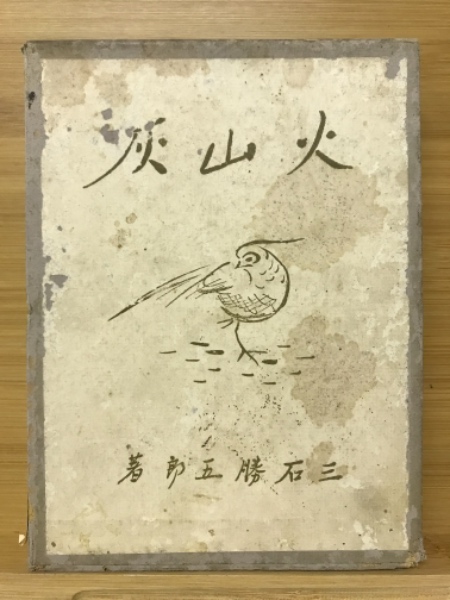 火山灰
三石勝五郎著